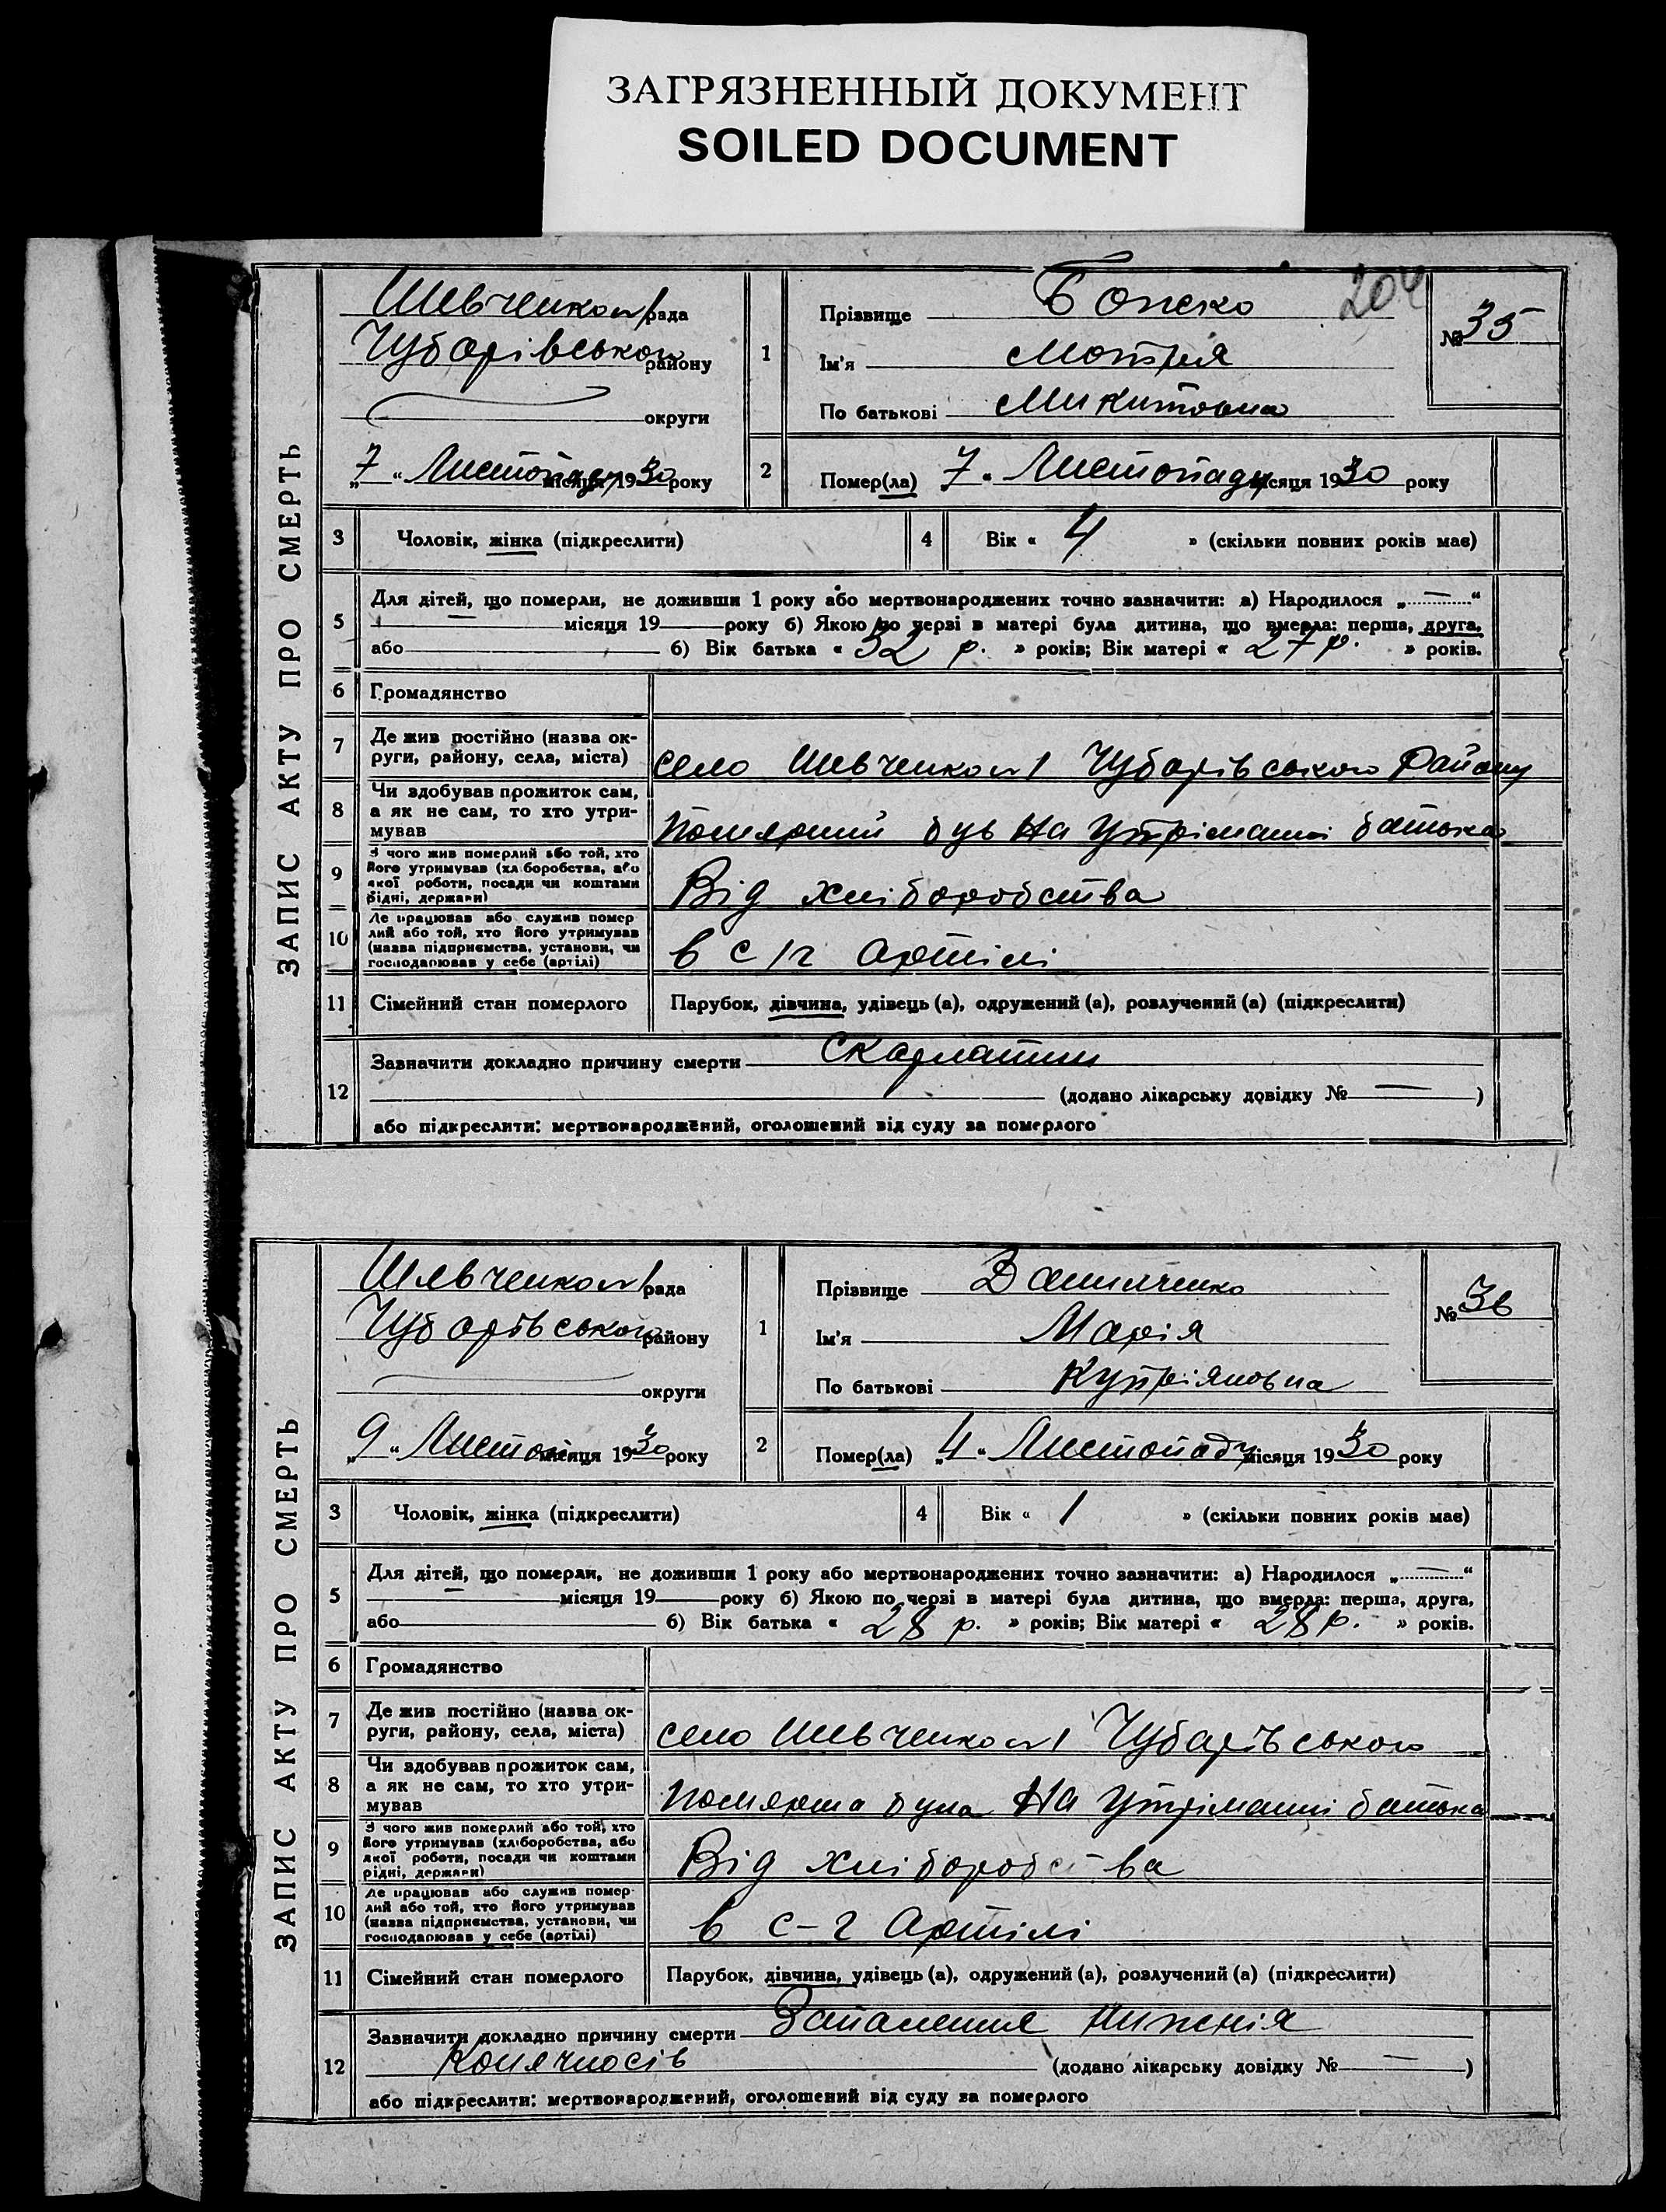 ЗАГРЯЗНЕННЫЙ ДОКУМЕНТ
SOILED DOCUMENT
204
ЗАПИС АКТУ ПРО СМЕРТЬ
Шевченко №1 рада
Чубарівського району
округи
„7“ Листопаду місяця 1930 року
1
Прізвище Бопско
Ім'я Мотря
По батькові Микитовна
№ 35
2
Помер(ла) „7“ Листопаду місяця 1930 року
3 Чоловік, жінка (підкреслити)
4 Вік « 4 » (скільки повних років має)
5 Для дітей, що померли, не доживши 1 року або мертвонароджених точно зазначити: а) Народилося „ — “
місяця 19 року б) Якою по черзі в матері була дитина, що вмерла: перша, друга,
або б) Вік батька « 32 р. » років; Вік матері « 27 р. » років.
6 Громадянство
7 Де жив постійно (назва ок-
руги, району, села, міста)
село Шевченко №1 Чубарівського Району
8 Чи здобував прожиток сам,
а як не сам, то хто утри-
мував
помярший був На Утріманні батька
9 З чого жив померлий або той, хто
його утримував (хліборобства, або
якої роботи, посади чи коштами
рідні, держави)
Від хліборобства
10 Де працював або служив помер
лий або той, хто його утримував
(назва підприємства, установи, чи
господарював у себе (артілі)
в с/г Артілі
11 Сімейний стан померлого
Парубок, дівчина, удівець (а), одружений (а), розлучений (а) (підкреслити)
12 Зазначити докладно причину смерти Скарлатин
(додано лікарську довідку № — )
або підкреслити: мертвонароджений, оголошений від суду за померлого
ЗАПИС АКТУ ПРО СМЕРТЬ
Шевченко №1 рада
Чубарівського району
округи
„9“ Листоп місяця 1930 року
1
Прізвище Данильченко
Ім'я Марія
По батькові Купріяновна
№ 36
2
Помер(ла) „4“ Листопаду місяця 1930 року
3 Чоловік, жінка (підкреслити)
4 Вік « 1 » (скільки повних років має)
5 Для дітей, що померли, не доживши 1 року або мертвонароджених точно зазначити: а) Народилося „ — “
місяця 19 року б) Якою по черзі в матері була дитина, що вмерла: перша, друга,
або б) Вік батька « 28 р. » років; Вік матері « 28 р. » років.
6 Громадянство
7 Де жив постійно (назва ок-
руги, району, села, міста)
село Шевченко №1 Чубарівського
8 Чи здобував прожиток сам,
а як не сам, то хто утри-
мував
помярша була На Утріманні батька
9 З чого жив померлий або той, хто
його утримував (хліборобства, або
якої роботи, посади чи коштами
рідні, держави)
Від хліборобства
10 Де працював або служив помер
лий або той, хто його утримував
(назва підприємства, установи, чи
господарював у себе (артілі)
в с-г Артілі
11 Сімейний стан померлого
Парубок, дівчина, удівець (а), одружений (а), розлучений (а) (підкреслити)
12 Зазначити докладно причину смерти Запаление нижнія
конячносів
(додано лікарську довідку № — )
або підкреслити: мертвонароджений, оголошений від суду за померлого